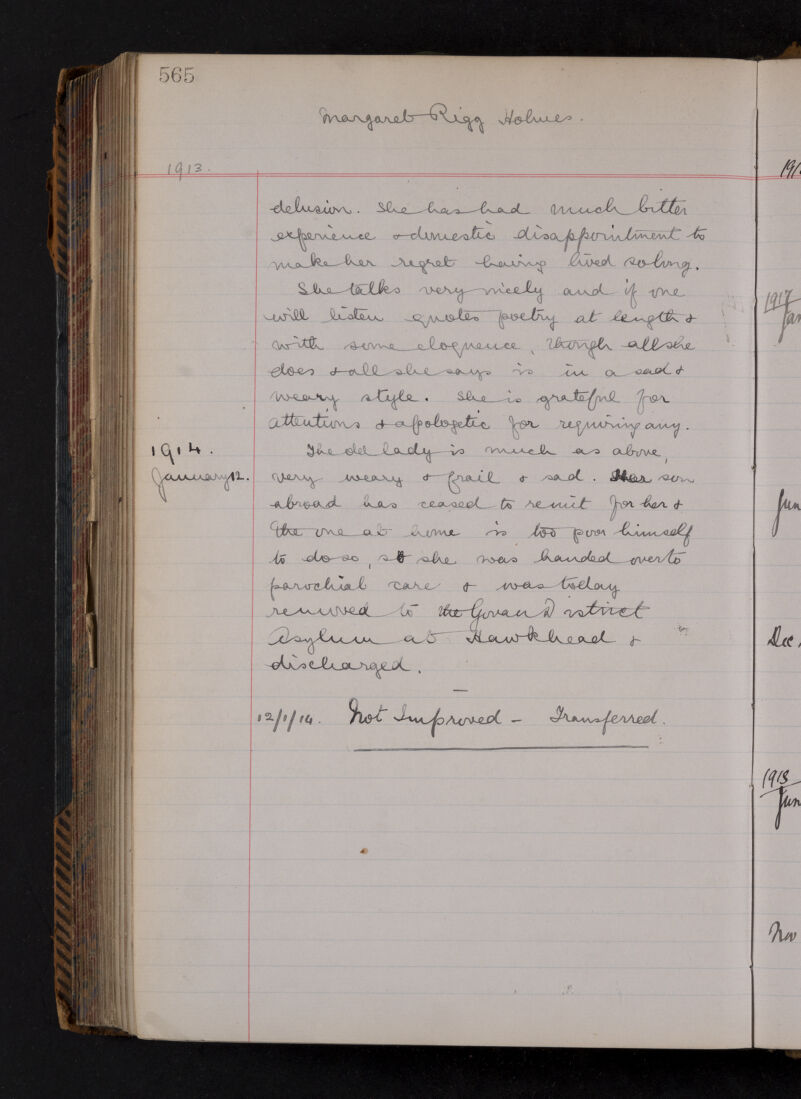 565
Margaret Rigg Holmes.
1913.
delusion. She has had much bitter
experience & domestic disappointment to
make her regret having lived so long.
She talks very nicely and if one
will listen quotes poetry at length &
with some eloquence, though all she
does & all she says is in a sad &
weary style. She is grateful for
attentions & apologetic for requiring any.
1914.
January 12.
The old lady is much as above,
very weary & frail & sad. Her son
abroad has ceased to remit for her &
the one at home is too poor himself
to do so, so she was handed over to
parochial care & was today
removed to the Govan District
Asylum at Hawkhead &
discharged.
12/1/14. Not Improved - Transferred.
191
1917
Jan
Jun
Dec.
1918
Jun
Nov